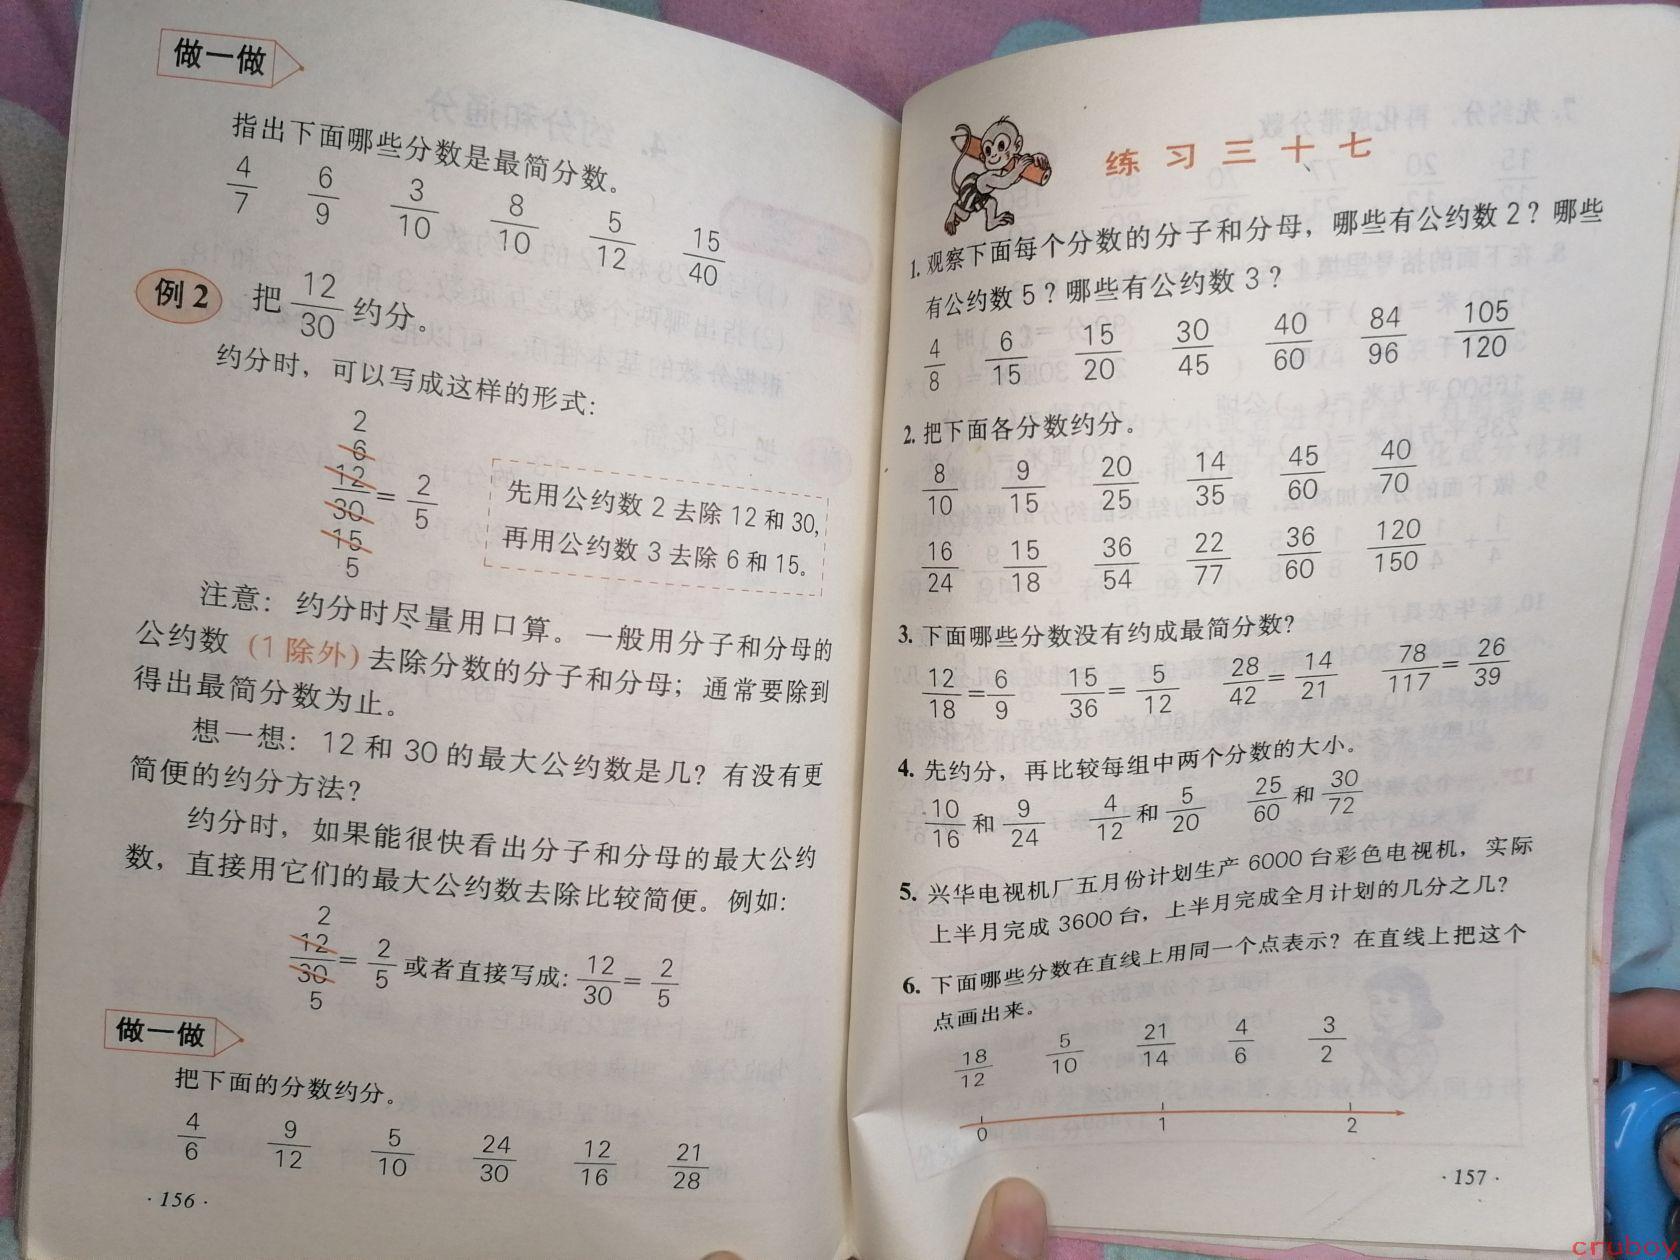 做一做
指出下面哪些分数是最简分数。
4/7 6/9 3/10 8/10 5/12 15/40
例2 把 12/30 约分。
约分时，可以写成这样的形式：
2
6
12
30
15
5
= 2/5
先用公约数 2 去除 12 和 30,
再用公约数 3 去除 6 和 15。
注意：约分时尽量用口算。一般用分子和分母的
公约数（1 除外）去除分数的分子和分母；通常要除到
得出最简分数为止。
想一想：12 和 30 的最大公约数是几？有没有更
简便的约分方法？
约分时，如果能很快看出分子和分母的最大公约
数，直接用它们的最大公约数去除比较简便。例如：
2
12
30
5
= 2/5 或者直接写成: 12/30 = 2/5
做一做
把下面的分数约分。
4/6 9/12 5/10 24/30 12/16 21/28
· 156 ·
练习三十七
1. 观察下面每个分数的分子和分母，哪些有公约数 2？哪些
有公约数 5？哪些有公约数 3？
4/8 6/15 15/20 30/45 40/60 84/96 105/120
2. 把下面各分数约分。
8/10 9/15 20/25 14/35 45/60 40/70
16/24 15/18 36/54 22/77 36/60 120/150
3. 下面哪些分数没有约成最简分数？
12/18 = 6/9 15/36 = 5/12 28/42 = 14/21 78/117 = 26/39
4. 先约分，再比较每组中两个分数的大小。
10/16 和 9/24 4/12 和 5/20 25/60 和 30/72
5. 兴华电视机厂五月份计划生产 6000 台彩色电视机，实际
上半月完成 3600 台，上半月完成全月计划的几分之几？
6. 下面哪些分数在直线上用同一个点表示？在直线上把这个
点画出来。
18/12 5/10 21/14 4/6 3/2
0 1 2
· 157 ·
cruboy